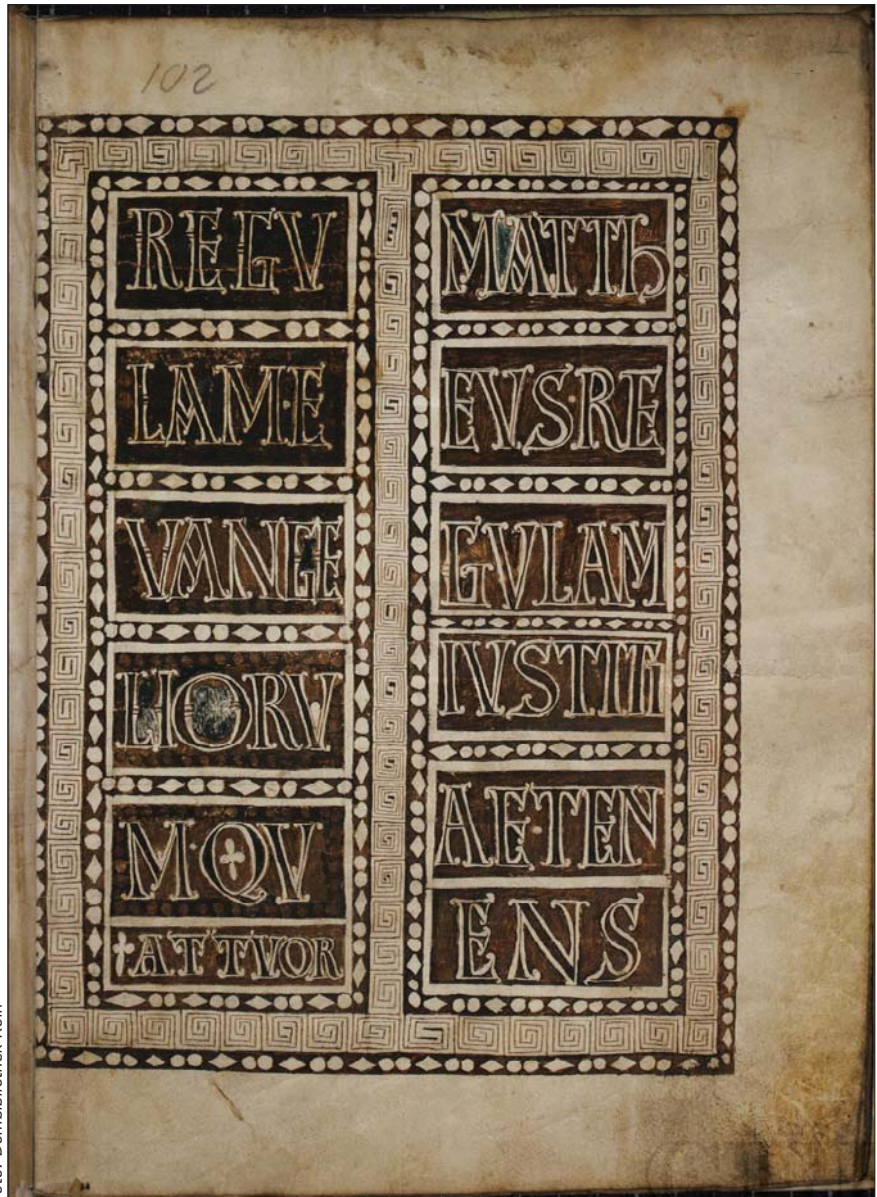 102
REGU
LAM·E
VANGE
LIORV
M·QV
ATTVOR
MATTH
EVS·RE
GVLAM
IVSTITI
AE·TEN
ENS